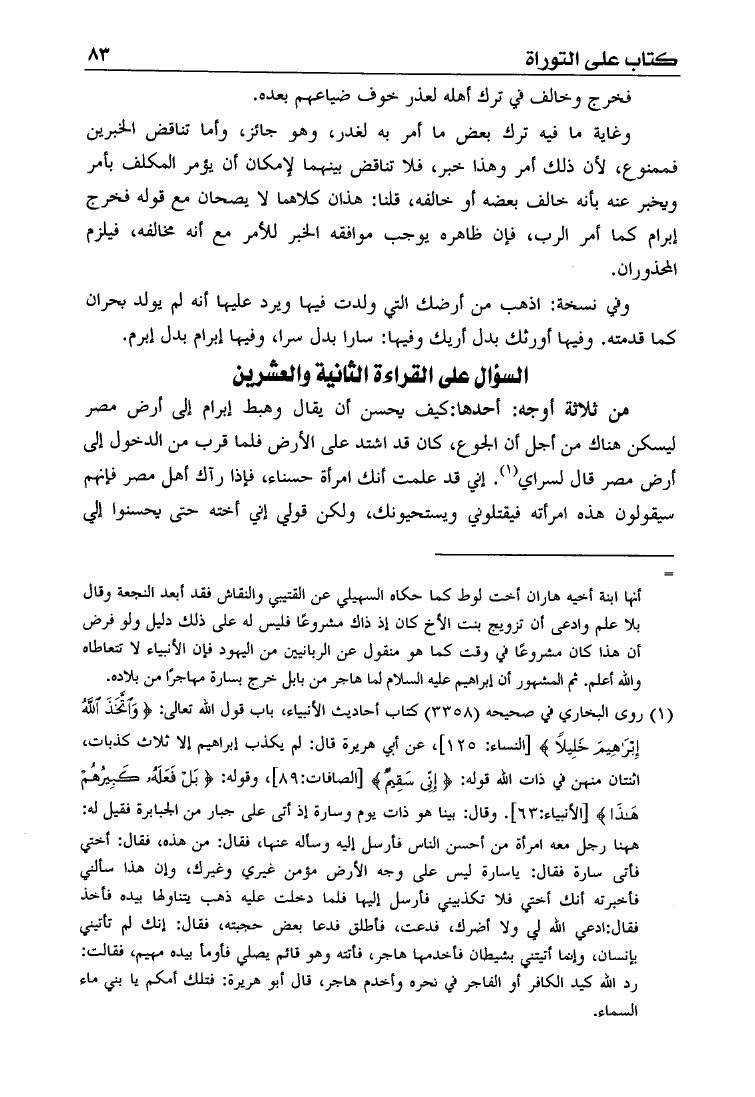 كتاب على التوراة ٨٣
فخرج وخالف في ترك أهله لعذر خوف ضياعهم بعده.
وغاية ما فيه ترك بعض ما أمر به لغدر، وهو جائز، وأما تناقض الخبرين
فممنوع، لأن ذلك أمر وهذا خبر، فلا تناقض بينهما لإمكان أن يؤمر المكلف بأمر
ويخبر عنه بأنه خالف بعضه أو خالفه، قلنا: هذان كلاهما لا يصحان مع قوله فخرج
إبرام كما أمر الرب، فإن ظاهره يوجب موافقه الخبر للأمر مع أنه مخالفه، فيلزم
المحذوران.
وفي نسخة: اذهب من أرضك التي ولدت فيها ويرد عليها أنه لم يولد بحران
كما قدمته. وفيها أورثك بدل أريك وفيها: سارا بدل سرا، وفيها إبرام بدل إبرم.
السؤال على القراءة الثانية والعشرين
من ثلاثة أوجه: أحدها:كيف يحسن أن يقال وهبط إبرام إلى أرض مصر
ليسكن هناك من أجل أن الجوع، كان قد اشتد على الأرض فلما قرب من الدخول إلى
أرض مصر قال لسراي(١). إني قد علمت أنك امرأة حسناء، فإذا رآك أهل مصر فإنهم
سيقولون هذه امرأته فيقتلوني ويستحيونك، ولكن قولي إني أخته حتى يحسنوا إلي
=
أنها ابنة أخيه هاران أخت لوط كما حكاه السهيلي عن القتيبي والنقاش فقد أبعد النجعة وقال
بلا علم وادعى أن تزويج بنت الأخ كان إذ ذاك مشروعًا فليس له على ذلك دليل ولو فرض
أن هذا كان مشروعًا في وقت كما هو منقول عن الربانيين من اليهود فإن الأنبياء لا تتعاطاه
والله أعلم. ثم المشهور أن إبراهيم عليه السلام لما هاجر من بابل خرج بسارة مهاجرًا من بلاده.
(١) روى البخاري في صحيحه (٣٣٥٨) كتاب أحاديث الأنبياء، باب قول الله تعالى: ﴿ وَٱتَّخَذَ ٱللَّهُ
إِبْرَٰهِيمَ خَلِيلًا ﴾ [النساء: ١٢٥]، عن أبي هريرة قال: لم يكذب إبراهيم إلا ثلاث كذبات،
اثنتان منهن في ذات الله قوله: ﴿ إِنِّي سَقِيمٌ ﴾ [الصافات:٨٩]، وقوله: ﴿ بَلْ فَعَلَهُۥ كَبِيرُهُمْ
هَٰذَا ﴾ [الأنبياء:٦٣]. وقال: بينا هو ذات يوم وسارة إذ أتى على جبار من الجبابرة فقيل له:
ههنا رجل معه امرأة من أحسن الناس فأرسل إليه وسأله عنها، فقال: من هذه، فقال: أختي
فأتى سارة فقال: ياسارة ليس على وجه الأرض مؤمن غيري وغيرك، وإن هذا سألني
فأخبرته أنك أختي فلا تكذبيني فأرسل إليها فلما دخلت عليه ذهب يتناولها بيده فأخذ
فقال:ادعي الله لي ولا أضرك، فدعت، فأطلق فدعا بعض حجبته، فقال: إنك لم تأتيني
بإنسان، وإنما أتيتني بشيطان فأخدمها هاجر، فأتته وهو قائم يصلي فأومأ بيده مهيم، فقالت:
رد الله كيد الكافر أو الفاجر في نحره وأخدم هاجر، قال أبو هريرة: فتلك أمكم يا بني ماء
السماء.